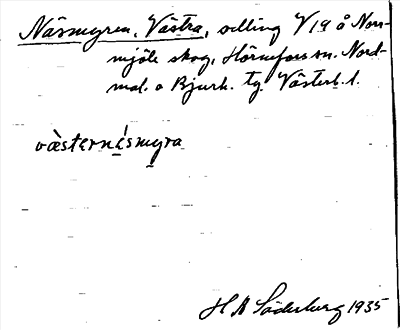 Näsmyren, Västra, odling V 19 å Norr-
mjöle skog, Hörnefors sn. Nord-
mal. o Bjurh. tg. Västerb. l.
västernä́smyra
H A Söderberg 1935